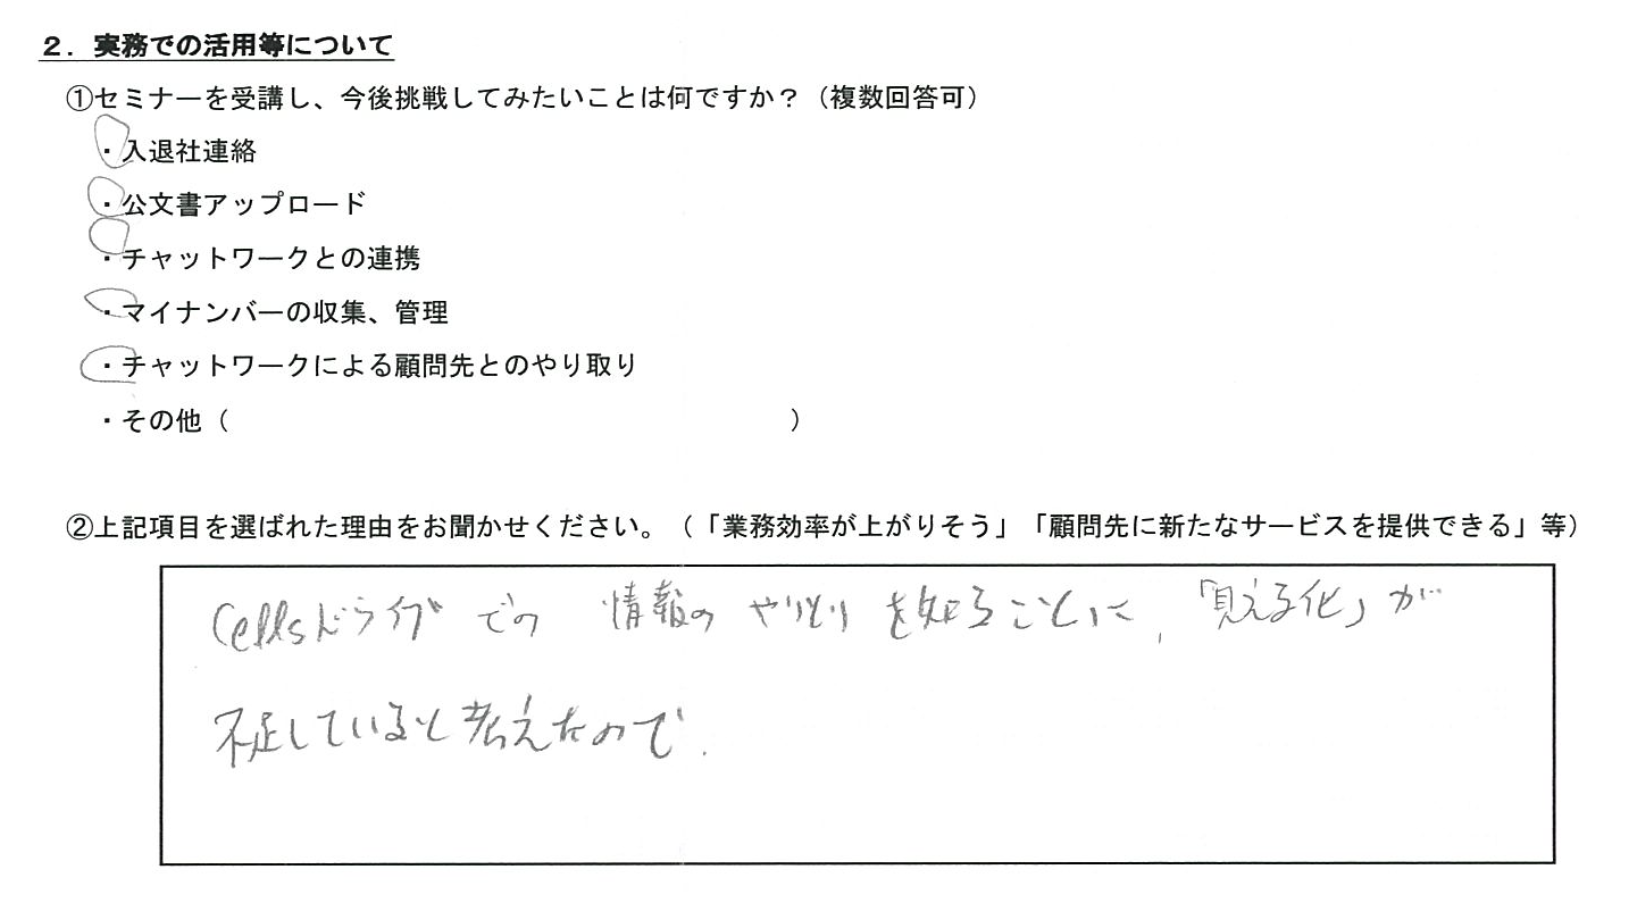 ２．実務での活用等について
①セミナーを受講し、今後挑戦してみたいことは何ですか？（複数回答可）
・入退社連絡
・公文書アップロード
・チャットワークとの連携
・マイナンバーの収集、管理
・チャットワークによる顧問先とのやり取り
・その他（　　　　　　　　　　　　　　　　　　　　　）
②上記項目を選ばれた理由をお聞かせください。（「業務効率が上がりそう」「顧問先に新たなサービスを提供できる」等）
Cellsドライブでの 情報の やりとり を知ることに、「見える化」が
不足していると考えたので.